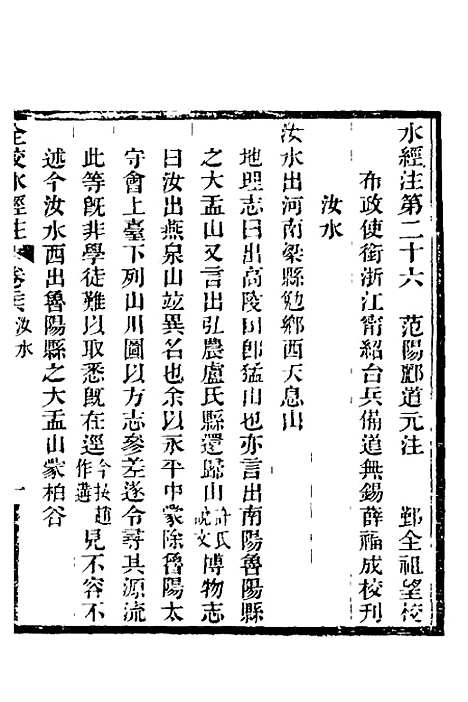 水經注第二十六　范陽酈道元注　鄞全祖望校
布政使銜浙江甯紹台兵備道無錫薛福成校刊
汝水
汝水出河南梁縣勉鄉西天息山
地理志曰出高陵山卽猛山也亦言出南陽魯陽縣
之大盂山又言出弘農盧氏縣還歸山許氏說文博物志
曰汝出燕泉山竝異名也余以永平中蒙除魯陽太
守會上臺下列山川圖以方志參差遂令尋其源流
此等旣非學徒難以取悉旣在逕今按趙作遘見不容不
述今汝水西出魯陽縣之大盂山蒙柏谷
全校水經注 卷 汝水 一